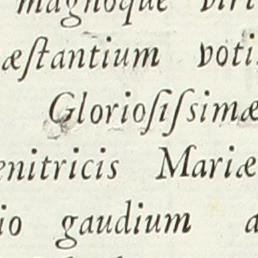 magnoque virt
æſtantium voti
Glorioſiſsimæ
enitricis Mariæ
io gaudium a